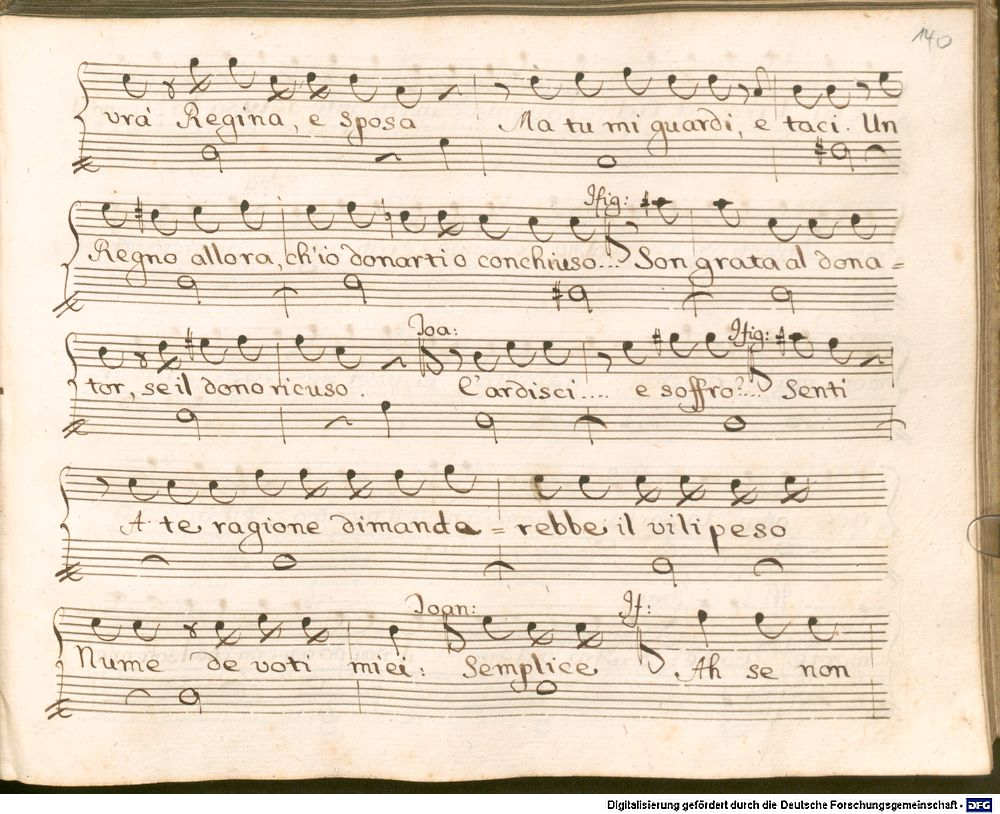 140
vrà Regina, e sposa Ma tu mi guardi, e taci. Un
Ifig:
Regno allora, ch'io donarti o conchiuso... Son grata al dona =
Joa: Ifig:
tor, se il dono ricuso. L'ardisci.... e soffro?... Senti
A te ragione dimanda = rebbe il vilipeso
Joan: If:
Nume de voti miei: Semplice Ah se non
Digitalisierung gefördert durch die Deutsche Forschungsgemeinschaft - DFG